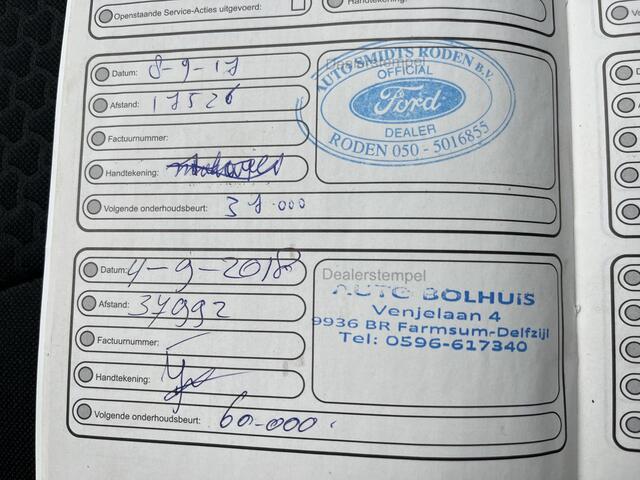 Openstaande Service-Acties uitgevoerd:
Handtekening:
Datum: 8-9-17
Afstand: 17526
Factuurnummer:
Handtekening:
Volgende onderhoudsbeurt: 37.000
Dealerstempel
AUTO SMIDTS RODEN B.V.
OFFICIAL
Ford
DEALER
RODEN 050 - 5016855
Datum: 4-9-2018
Afstand: 37992
Factuurnummer:
Handtekening:
Volgende onderhoudsbeurt: 60.000
Dealerstempel
AUTO BOLHUIS
Venjelaan 4
9936 BR Farmsum-Delfzijl
Tel: 0596-617340